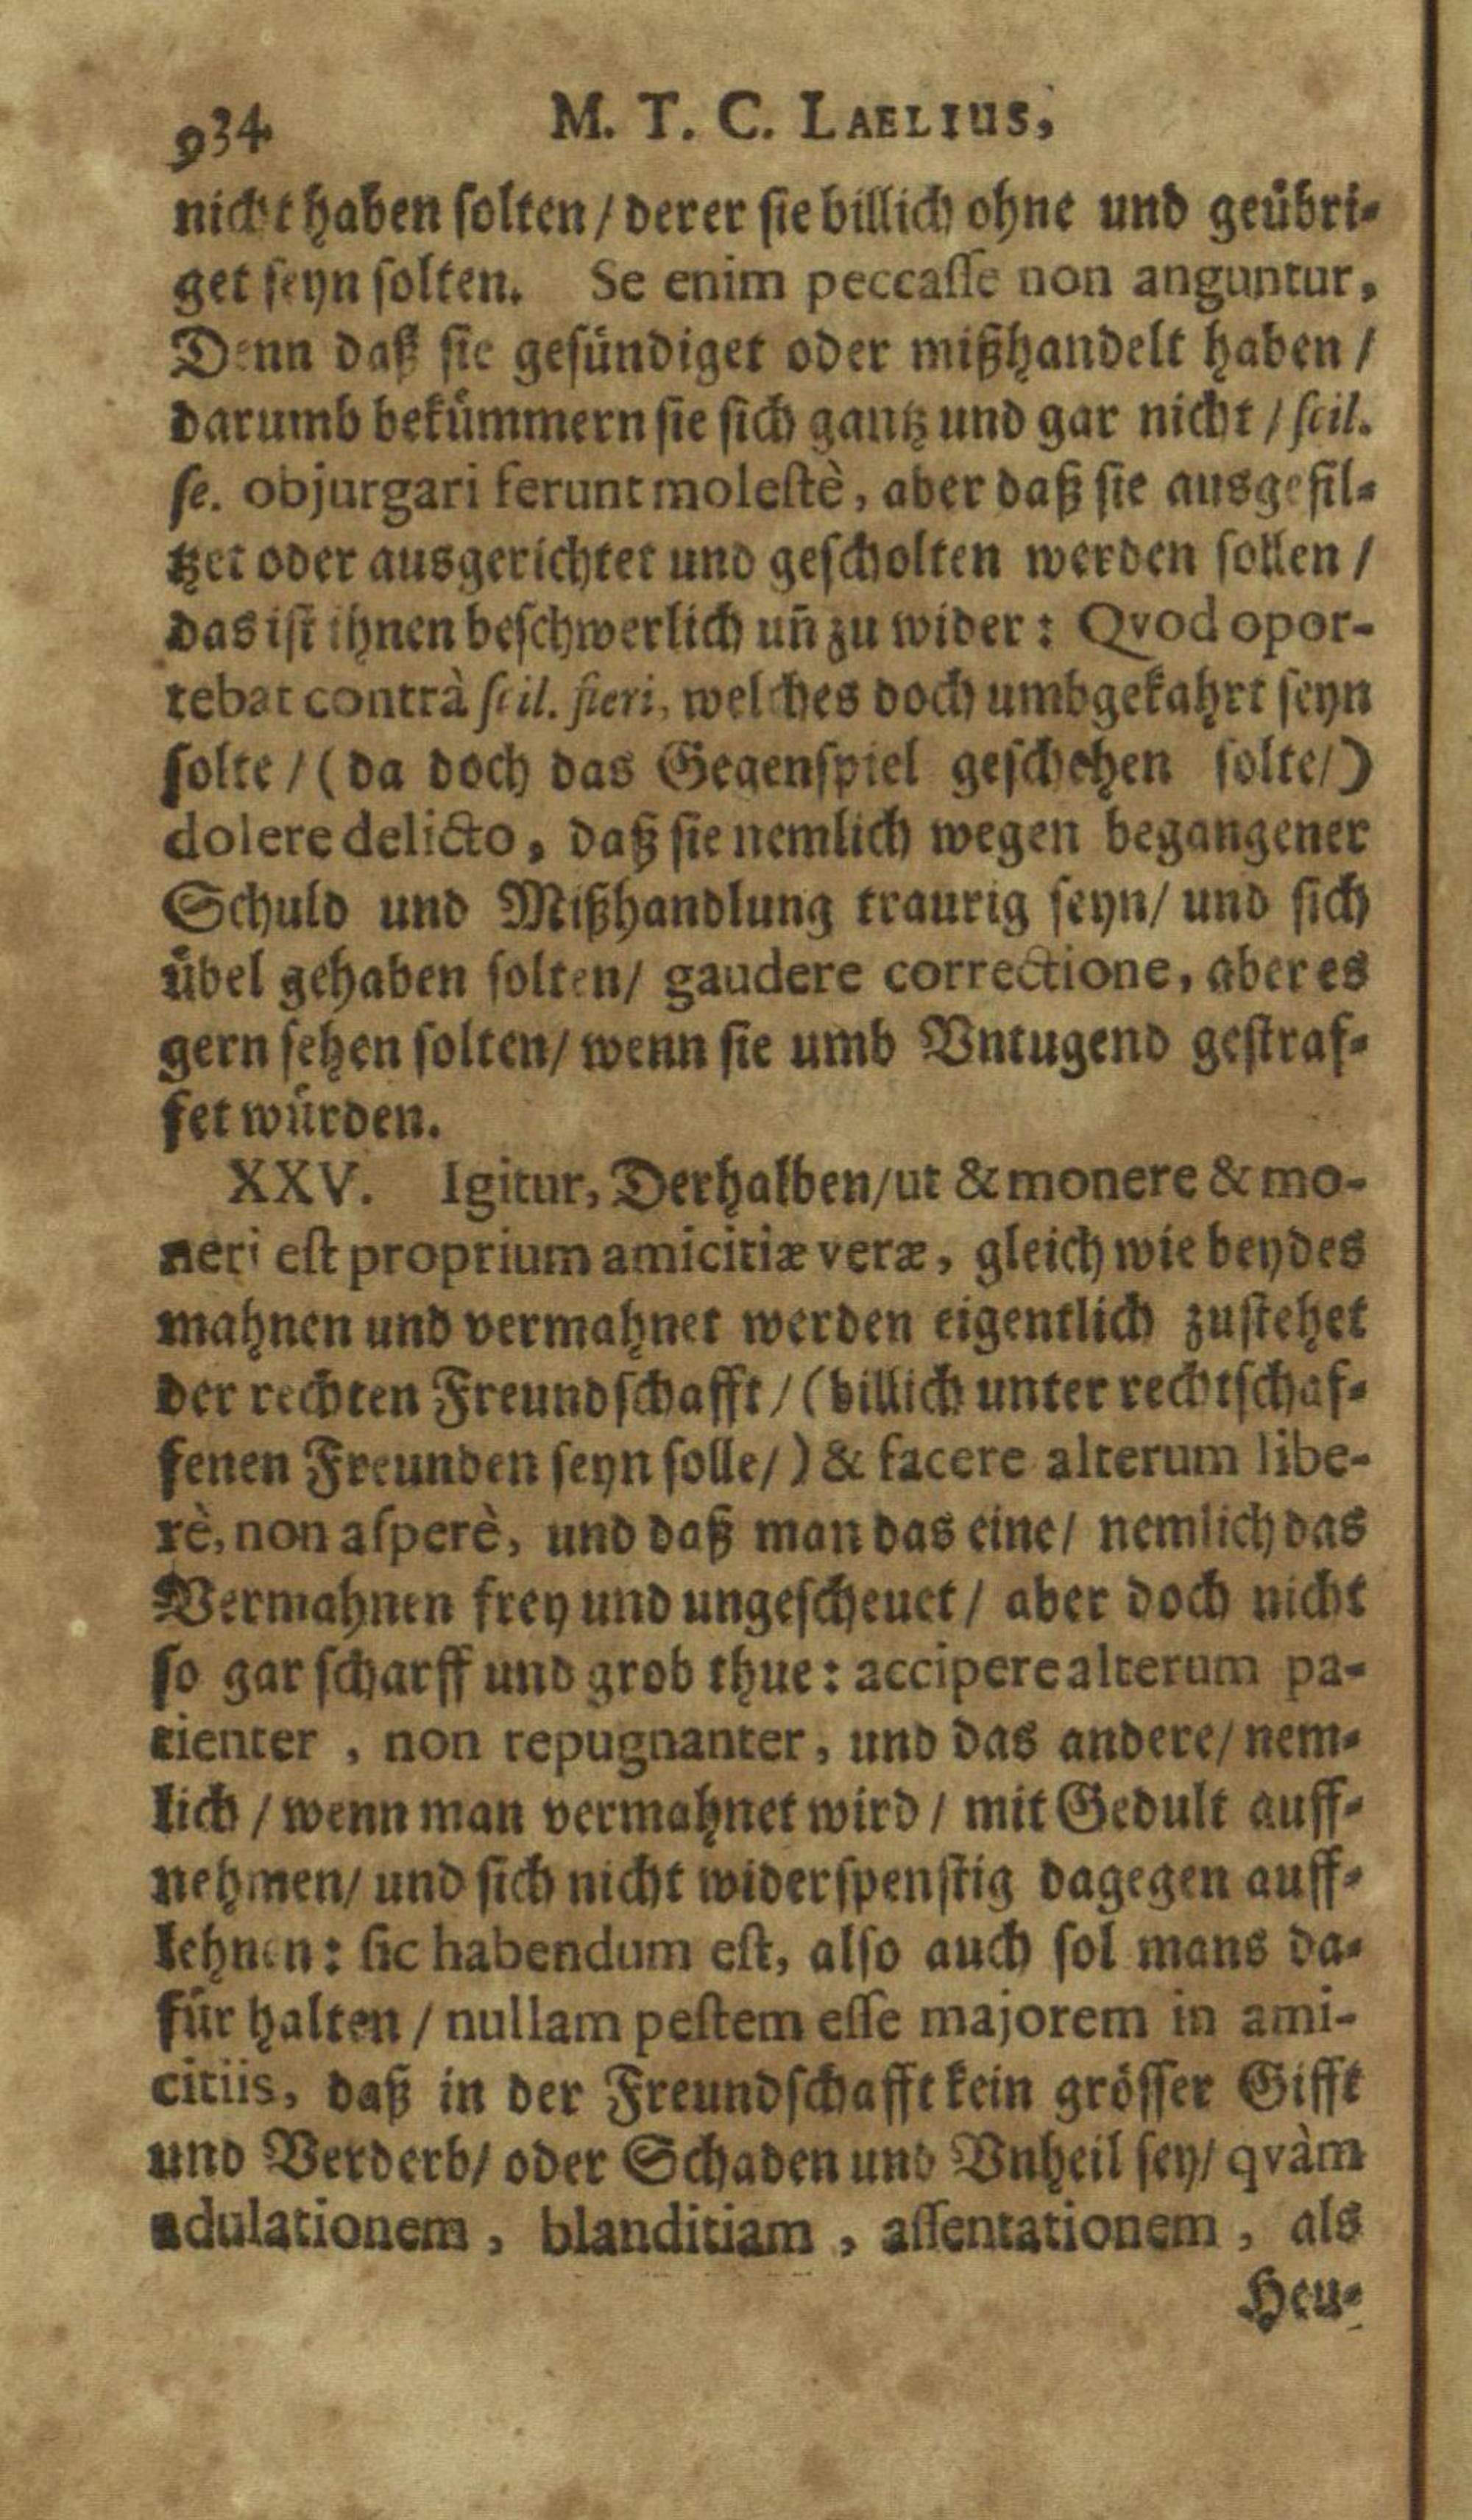 934 M. T. C. LAELIUS,
nicht haben ſolten / derer ſie billich ohne und geübri-
get ſeyn ſolten. Se enim peccaſſe non anguntur,
Denn daß ſie geſündiget oder mißhandelt haben /
darumb bekümmern ſie ſich gantz und gar nicht / ſcil.
ſe. objurgari ferunt moleſtè, aber daß ſie ausgefil-
tzet oder ausgerichtet und geſcholten werden ſollen /
das iſt ihnen beſchwerlich uñ zu wider: Qvod opor-
tebat contrà ſcil. fieri, welches doch umbgekahrt ſeyn
ſolte / (da doch das Gegenſpiel geſchehen ſolte/)
dolere delicto, daß ſie nemlich wegen begangener
Schuld und Mißhandlung traurig ſeyn/ und ſich
übel gehaben ſolten/ gaudere correctione, aber es
gern ſehen ſolten/ wenn ſie umb Vntugend geſtraf-
fet würden.
XXV. Igitur, Derhalben/ut & monere & mo-
neri eſt proprium amicitiæ veræ, gleich wie beydes
mahnen und vermahnet werden eigentlich zuſtehet
der rechten Freundſchafft / (billich unter rechtſchaf-
fenen Freunden ſeyn ſolle/) & facere alterum libe-
rè, non aſperè, und daß man das eine/ nemlich das
Vermahnen frey und ungeſcheuet / aber doch nicht
ſo gar ſcharff und grob thue: accipere alterum pa-
tienter , non repugnanter, und das andere/ nem-
lich / wenn man vermahnet wird / mit Gedult auff-
nehmen/ und ſich nicht widerſpenſtig dagegen auff-
lehnen: ſic habendum eſt, alſo auch ſol mans da-
für halten / nullam peſtem eſſe majorem in ami-
citiis, daß in der Freundſchafft kein gröſſer Gifft
und Verderb/ oder Schaden und Vnheil ſey/ qvàm
adulationem, blanditiam, aſſentationem, als
Heu-